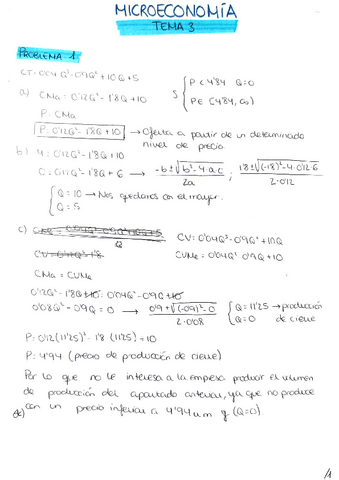 MICROECONOMÍA
TEMA 3
PROBLEMA 1
CT = 0'04Q³ - 0'9Q² + 10Q + 5
a) CMa = 0'12Q² - 1'8Q + 10
P = CMa
P = 0'12Q² - 1'8Q + 10 → Oferta a partir de un determinado nivel de precio.
S { P < 4'84 Q=0
P ∈ (4'84, ∞)
b) 4 = 0'12Q² - 1'8Q + 10
0 = 0'12Q² - 1'8Q + 6 → -b ± √b² - 4·a·c / 2a ; 1'8 ± √(-1'8)² - 4·0'12·6 / 2·0'12
{ Q = 10 → Nos quedamos con el mayor.
Q = 5
c)
CV = 0'04Q³ - 0'9Q² + 10Q
CVMe = 0'04Q² - 0'9Q + 10
CMa = CVMe
0'12Q² - 1'8Q + 10 = 0'04Q² - 0'9Q + 10
0'08Q² - 0'9Q = 0 → 0'9 ± √(-0'9)² - 0 / 2·0'08 { Q = 11'25 → producción de cierre
Q = 0
P = 0'12(11'25)² - 1'8(11'25) + 10
P = 4'94 (precio de producción de cierre)
Por lo que no le interesa a la empresa producir el volumen
de producción del apartado anterior, ya que no produce
con un precio inferior a 4'94 u.m y (Q=0)
d)
/1